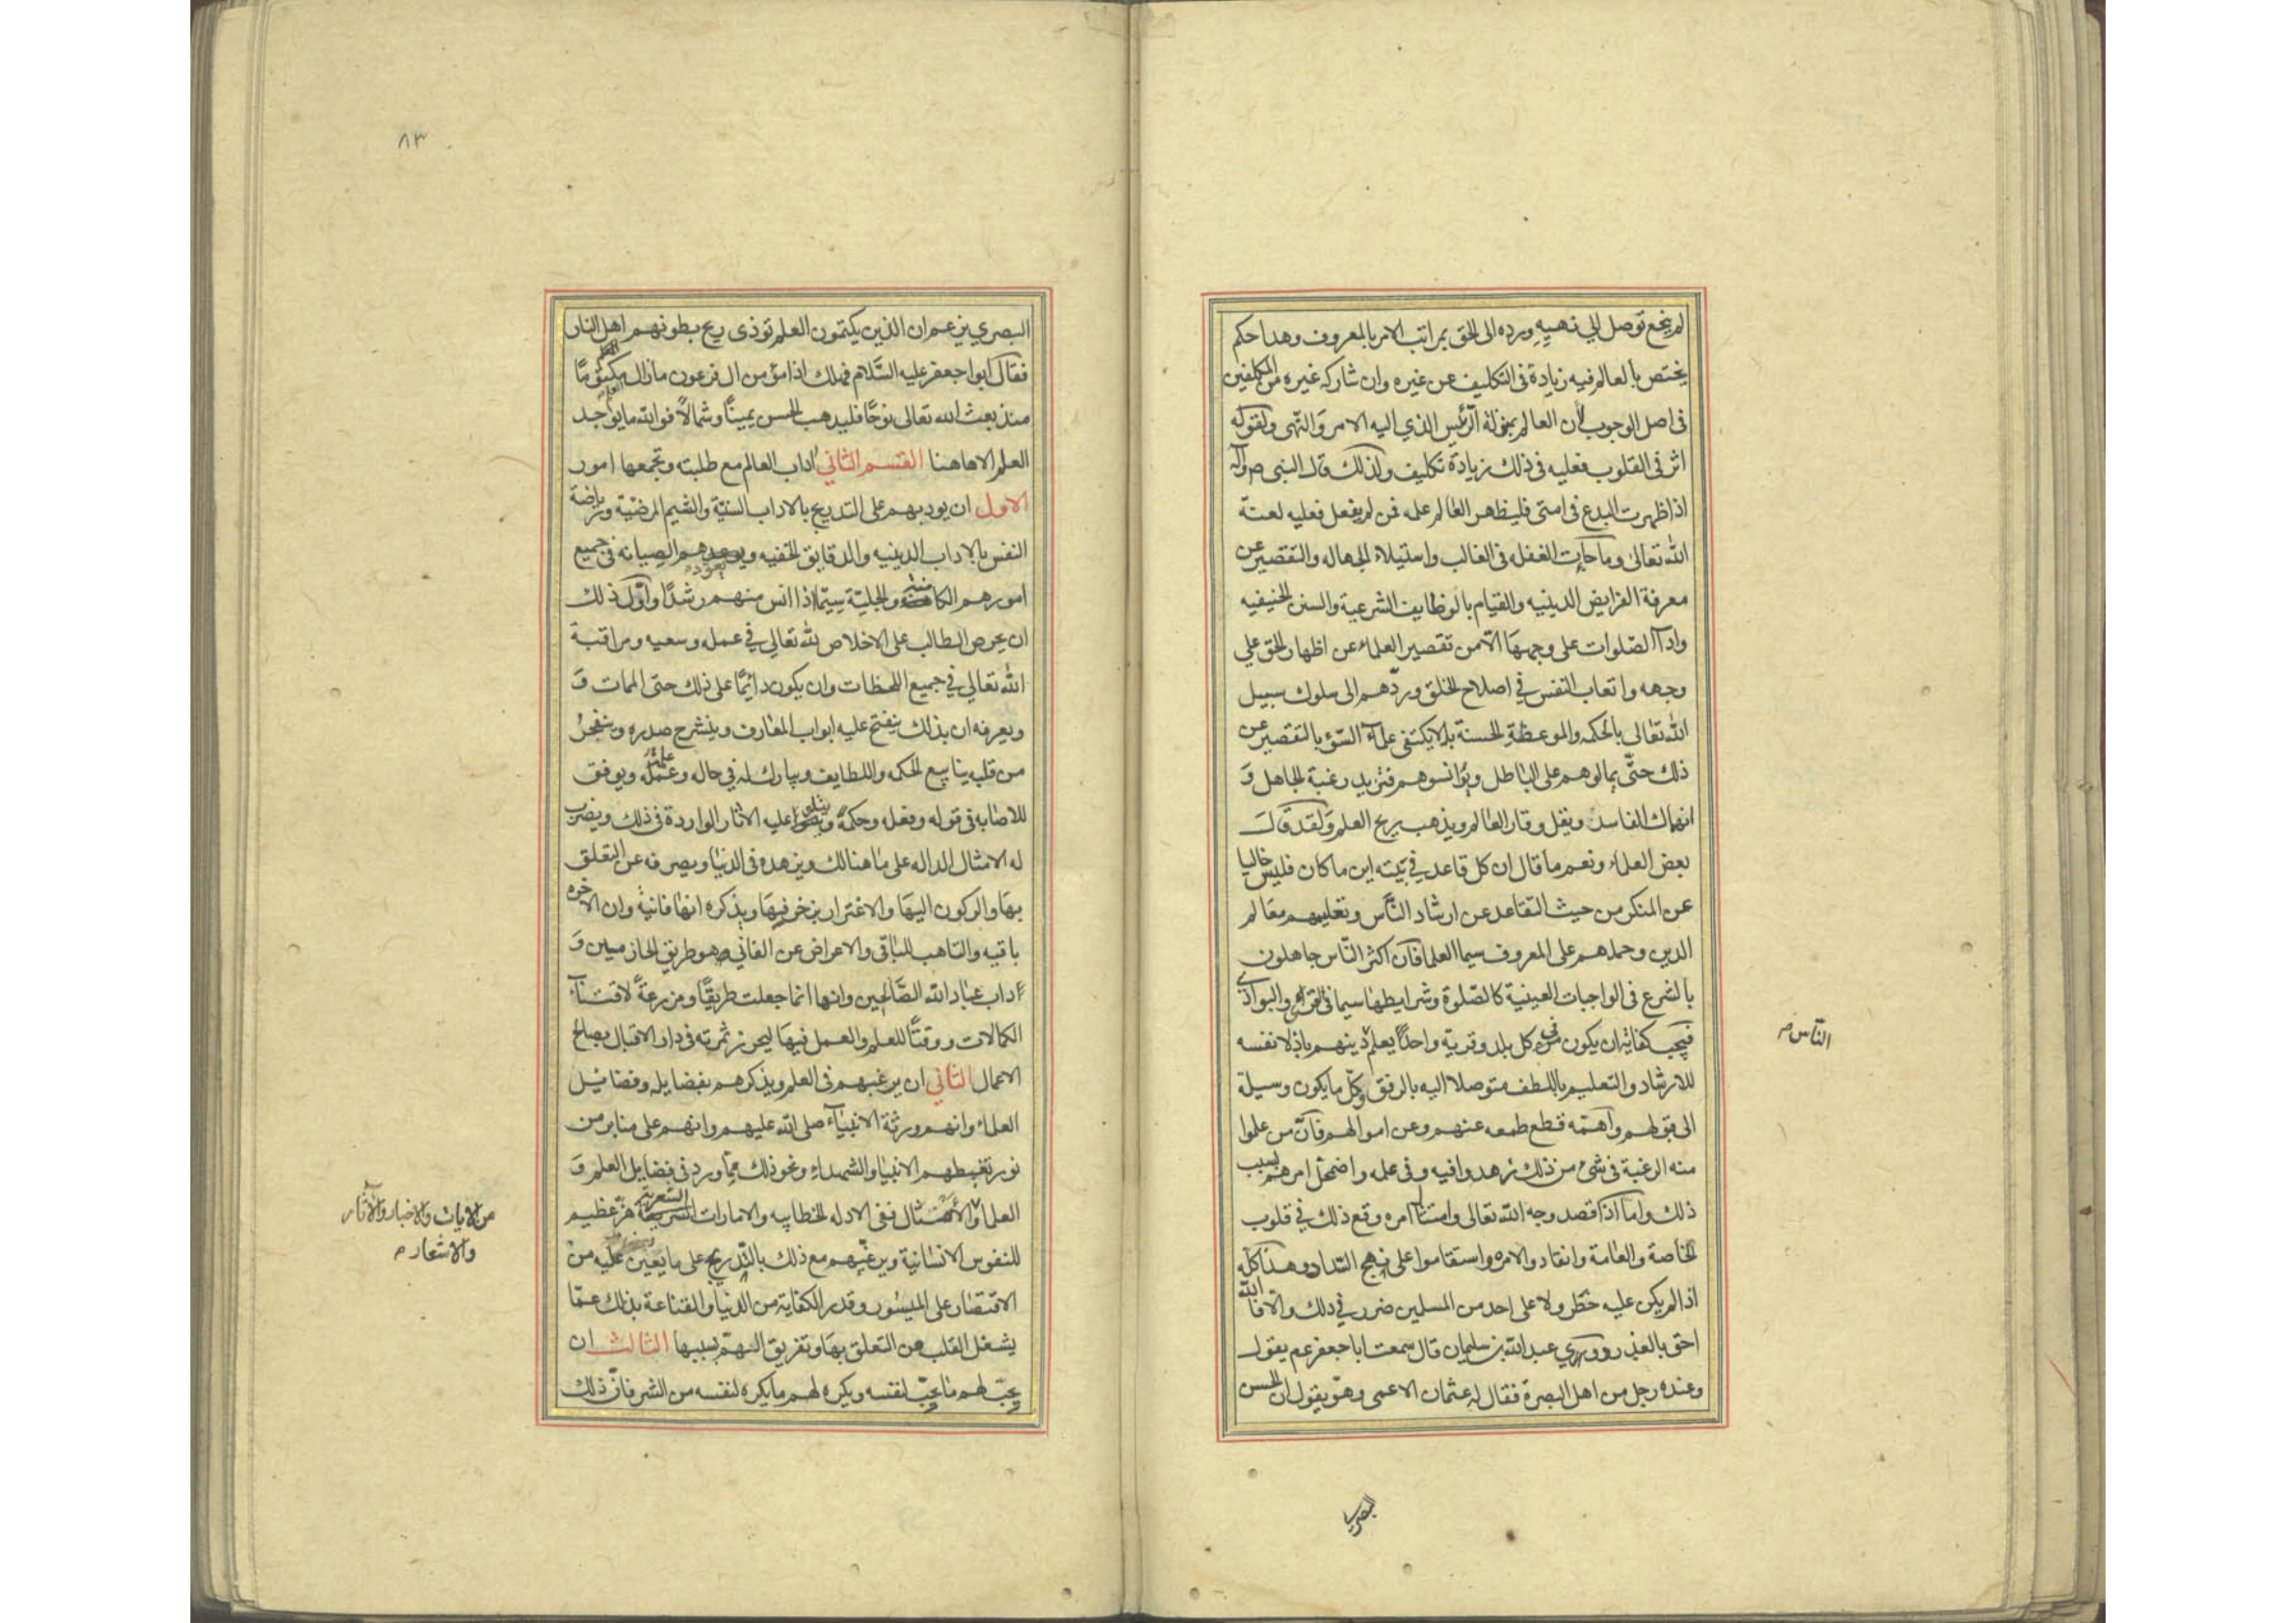 لم ينجع توصل الى نهيه ورده الى الحق بمراتب الامر بالمعروف وهذا حكم
يختص بالعالم فيه زيادة فى التكليف عن غيره وان شاركه غيره من المكلفين
فى اصل الوجوب لان العالم بمنزلة الرئيس الذي اليه الامر والنهى ولقوله
اثر فى القلوب فعليه فى ذلك زيادة تكليف ولذلك قال النبى ص وآله
اذا ظهرت البدع فى امتى فليظهر العالم علمه فمن لم يفعل فعليه لعنة
الله تعالى وما جاءت الغفله فى الغالب واستيلاء الجهاله والتقصير عن
معرفة الفرايض الدينيه والقيام بالوظايف الشرعية والسنن الحنيفيه
واداآ الصلوات على وجهها الا من تقصير العلماء عن اظهار الحق على
وجهه واتعاب النفس في اصلاح الخلق وردهم الى سلوك سبيل
الله تعالى بالحكمه والموعظة الحسنة بل لا يكتفى علمآء السؤ بالتقصير عن
ذلك حتى يمالوهم على الباطل ويؤانسوهم فتزيد رغبة الجاهل و
انهماك الفاسد ويقل وقار العالم ويذهب بريح العلم ولقد قال
بعض العلماء ونعم ما قال ان كل قاعد في بيته اين ما كان فليس خاليا
عن المنكر من حيث التقاعد عن ارشاد الناس وتعليمهم معالم
الدين وحملهم على المعروف سيما العلما فان اكثر الناس جاهلون
بالشرع فى الواجبات العينية كالصلوة وشرايطها سيما فى القرى والبوادي
فيجب كفاية ان يكون فى كل بلد وقرية واحدا يعلم دينهم باذلا نفسه
الناس صح
للارشاد والتعليم باللطف متوصلا اليه بالرفق وكل ما يكون وسيلة
الى قبولهم واهمه قطع طمعه عنهم وعن اموالهم فان من علموا
منه الرغبة فى شئ من ذلك زهدوا فيه وفى علمه واضمحل امرهم بسبب
ذلك واما اذا قصد وجه الله تعالى وامتثال امره وقع ذلك في قلوب
الخاصة والعامة وانقادوا لامره واستقاموا على نهج السداد وهذا كله
اذا لم يكن عليه خطر ولا على احد من المسلمين ضرر في ذلك والا فالله
احق بالعذر وروي عبد الله بن سليمان قال سمعت ابا جعفر عم يقول
وعنده رجل من اهل البصرة فقال له عثمان الاعمى وهو يقول ان الحسن
البصرى
٨٣
البصري يزعم ان الذين يكتمون العلم توذى ريح بطونهم اهل النار
فقال ابوا جعفر عليه السلام فهلك اذا مؤمن ال فرعون ما زال العلم مكتوما
منذ بعث الله تعالى نوحا فليذهب الحسن يمينا وشمالا فوالله ما يوجد
العلم الا هاهنا القسم الثاني اداب العالم مع طلبته وتجمعها امور
الاول ان يودبهم على التدريج بالاداب السنية والشيم المرضية ورياضة
النفس بالاداب الدينيه والدقايق الخفيه ويعودهم الصيانه فى جميع
امورهم الكامنة والجلية سيما اذا انس منهم رشدا واول ذلك
ان يحرص الطالب على الاخلاص لله تعالى في عمله وسعيه ومراقبة
الله تعالى في جميع اللحظات وان يكون دائما على ذلك حتى الممات و
ويعرفه ان بذلك ينفتح عليه ابواب المعارف وينشرح صدره وينفجر
من قلبه ينابيع الحكمه واللطايف ويبارك له في حاله وعلمه ويوفق
للاصابه فى قوله وفعله وحكمه ويتلو عليه الاثار الواردة فى ذلك ويضرب
له الامثال الداله على ما هنالك ويزهده فى الدنيا ويصرفه عن التعلق
بها والركون اليها والاغترار بزخرفها ويذكره انها فانية وان الاخره
باقيه والتاهب للباقى والاعراض عن الفاني هو طريق الحازمين و
آداب عباد الله الصالحين وانها انما جعلت طريقا ومزرعة لاقتناء
الكمالات ووقتا للعلم والعمل فيها ليحرز ثمرته فى دار الاقبال بصالح
الاعمال الثاني ان يرغبهم فى العلم ويذكرهم بفضايله وفضايل
العلماء وانهم ورثة الانبيآء صلى الله عليهم وانهم على منابر من
نور تغبطهم الانبيا والشهداء ونحو ذلك مما ورد فى فضايل العلم و
من الايات والاخبار والآثار
والاشعار صح
العلما والامثال ففى الادله الخطابيه والامارات الشعرية هز عظيم
للنفوس الانسانية ويرغبهم مع ذلك بالتدريج على ما يعين عليه من
الاقتصار على الميسور وقدر الكفاية من الدنيا والقناعة بذلك عما
يشغل القلب من التعلق بها وتفريق الهم بسببها الثالث ان
يحب لهم ما يحب لنفسه ويكره لهم ما يكره لنفسه من الشر فان ذلك